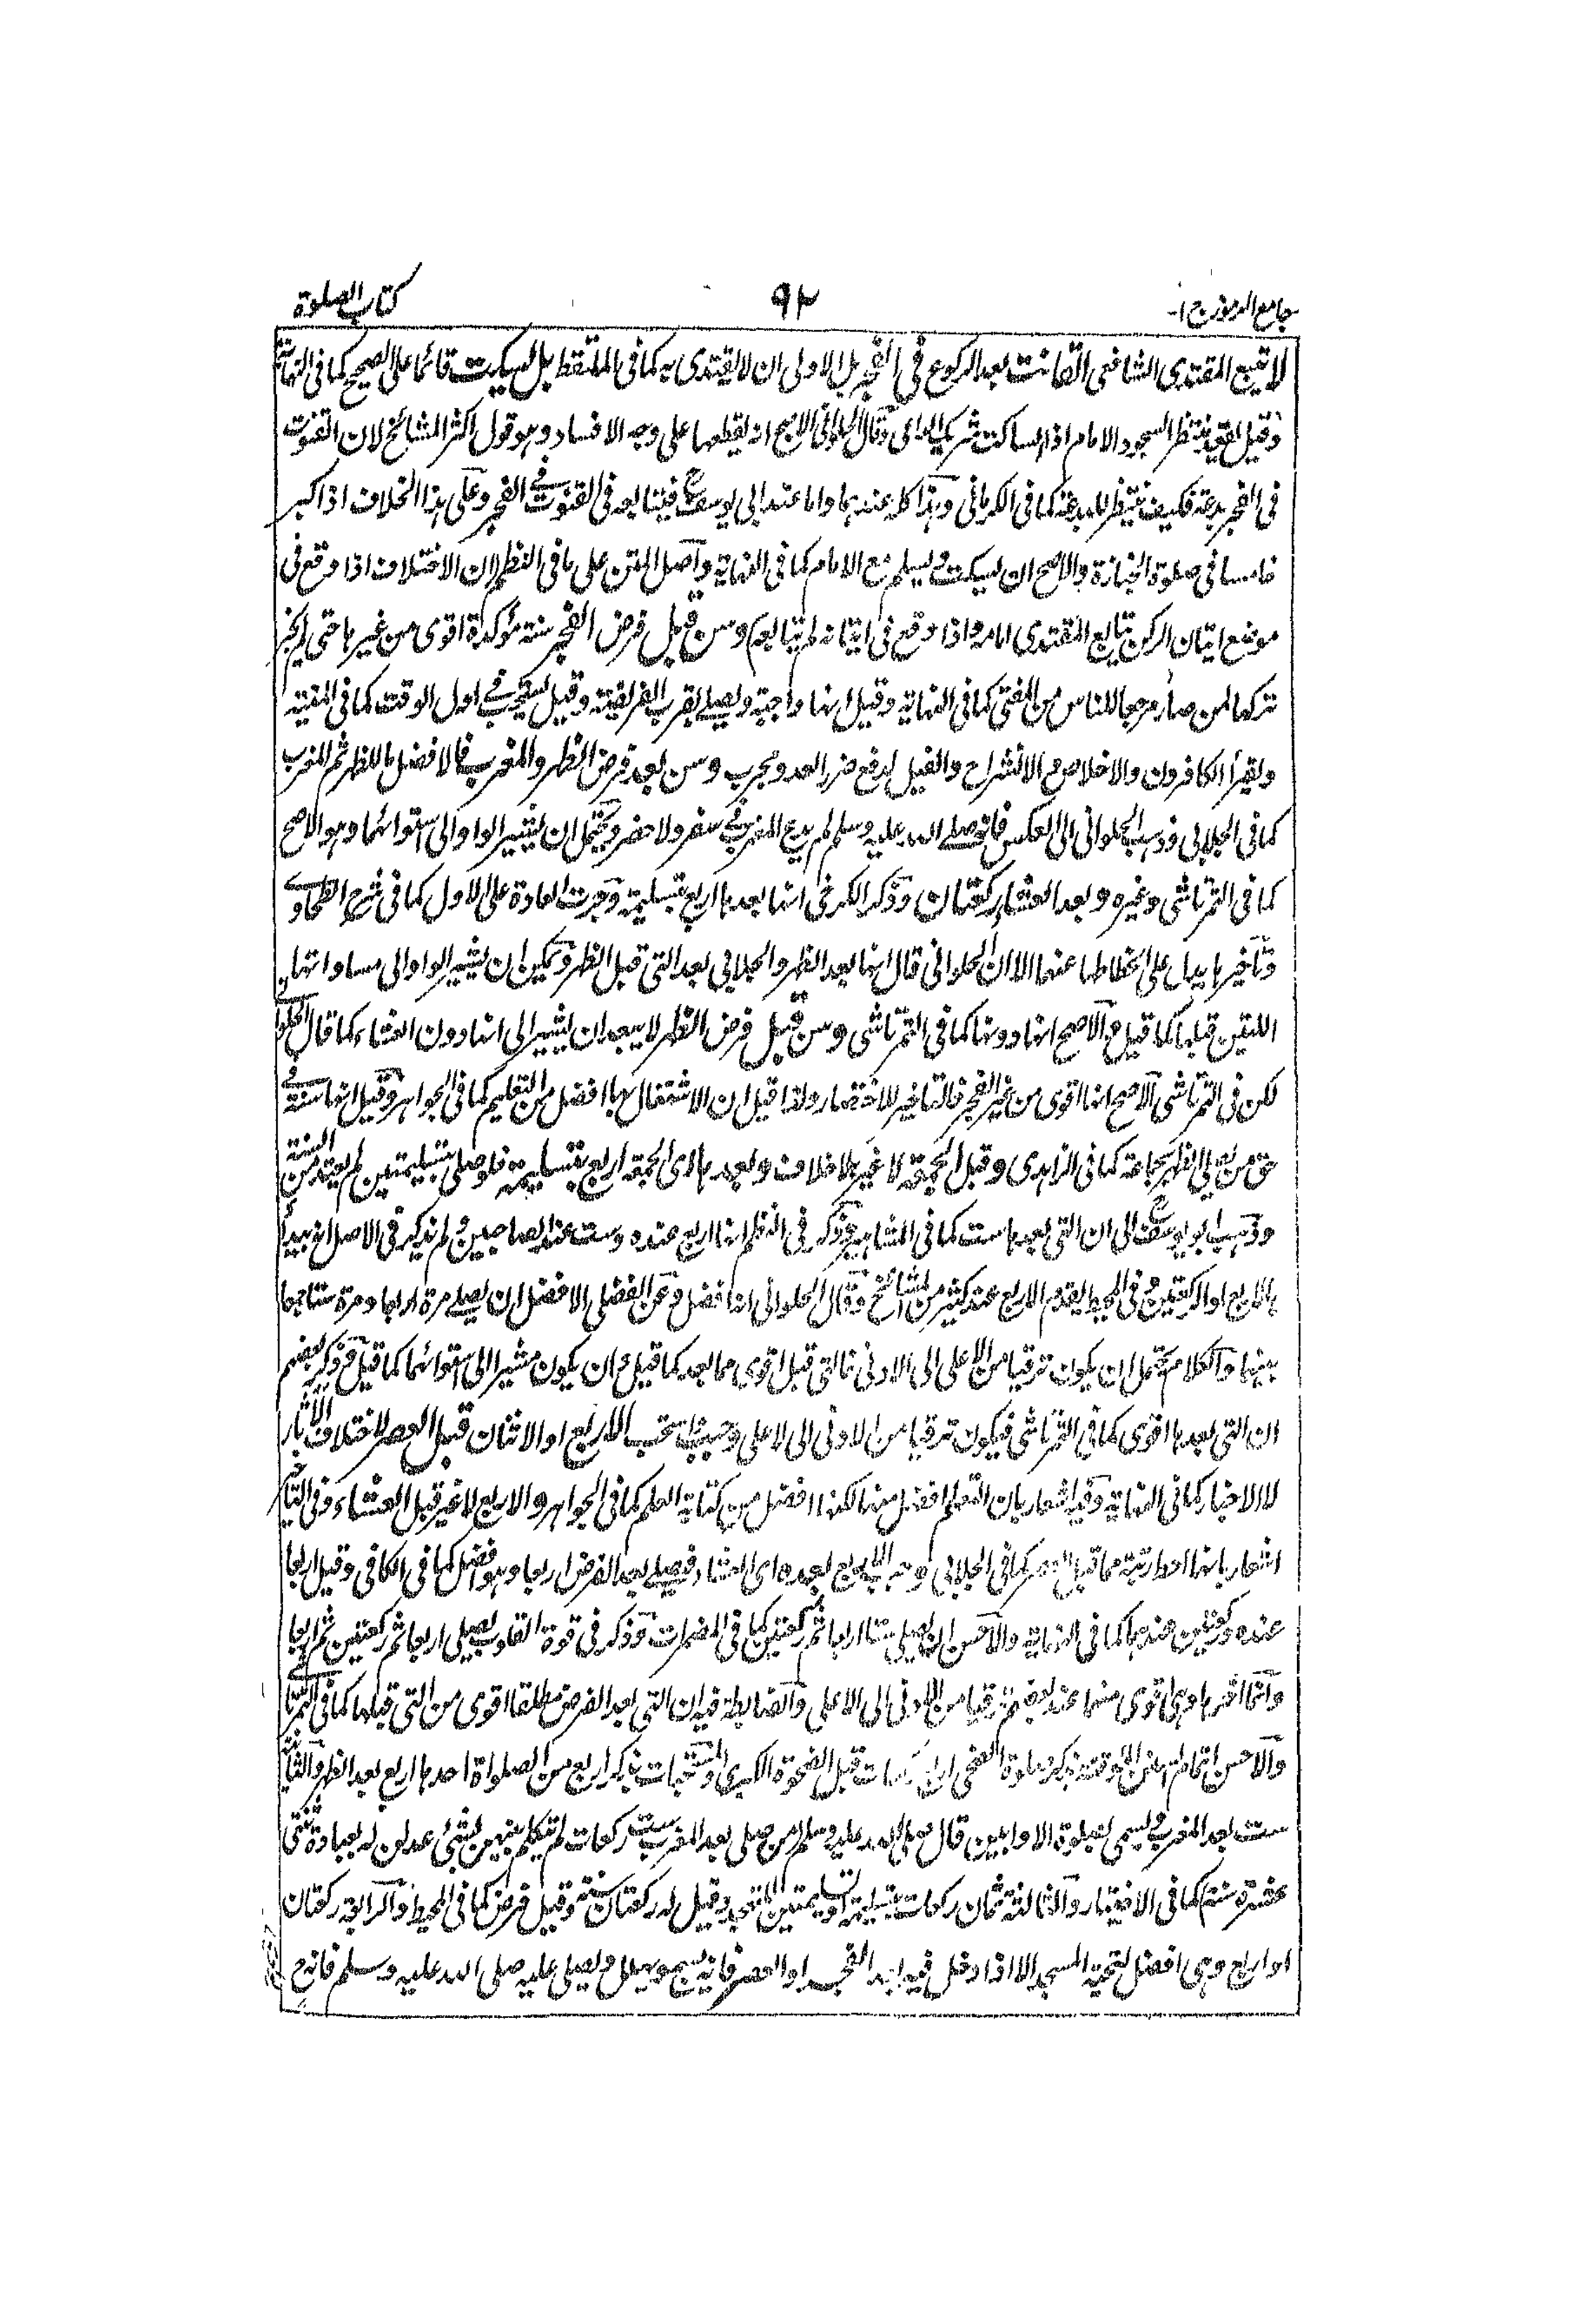 جامع الرموز ج ۱-
۹۲
كتاب الصلوة
لا يتبع المقتدى الشافعى القانت بعد الركوع فى الفجر بل الاولى ان لا يقتدى به كما فى الملتقط بل يسكت قائما على الصحيح كما فى النهاية
وقيل يقعد ينتظر السجود الامام اذ الساكت شريك الداعى وقال الحلوانى الاصح انه يقطعها على وجه الافساد وهو قول اكثر المشائخ لان القنوت
فى الفجر بدعة فكيف ينتظر للبدعة كما فى الكرمانى وهذا كله عندهما واما عند ابى يوسف فيتابعه فى القنوت فى الفجر وعلى هذا الخلاف اذا كبر
خامسا فى صلوة الجنازة والاصح ان يسكت ويسلم مع الامام كما فى النهاية واصل المتن على ما فى النظم ان الاختلاف اذا وقع فى
موضع اتيان الركن يتابع المقتدى امامه واذا وقع فى اتيانه لم يتابعه وسن قبل فرض الفجر سنة مؤكدة اقوى من غيرها حتى لم يجز
تركها لمن صار مرجعا للناس من المفتى كما فى النهاية وقيل انها واجبة ويصلى بقرب الفريضة وقيل يستحب فى اول الوقت كما فى المنية
ويقرأ الكافرون والاخلاص والانشراح والفيل لدفع ضرر العدو مجرب وسن بعد فرض الظهر والمغرب فالافضل ما للظهر ثم المغرب
كما فى الجلابى وذهب الحلوانى الى العكس فانه صلى الله عليه وسلم لم يدع المغرب فى سفر ولا حضر ويحتمل ان يشير الواو الى استوائهما وهو الاصح
كما فى التمرتاشى وغيره وبعد العشاء ركعتان وذكر الكرخى انها بعدها اربع بتسليمة وجرت العادة على الاول كما فى شرح الطحاوى
وتأخيرها يدل على انحطاطها عنهما الا ان الحلوانى قال انها بعد الظهر والجلابى بعد التى قبل الظهر ويمكن ان يشير الواو الى مساواتها
اللتين قبلها كما قيل والاصح انها دونها كما فى التمرتاشى وسن قبل فرض الظهر لا يبعد ان يشير الى انها دون العشاء كما قال الحلوانى
لكن فى التمرتاشى الاصح انها اقوى من غير الفجر فالتاخير للاختصار ولذا قيل ان الاشتغال بها افضل من التعليم كما فى الجواهر وقيل انها سنة فى
حق من يصلى الظهر بجماعة كما فى الزاهدى وقبل الجمعة لا غير بلا خلاف وبعدها اى الجمعة اربع بتسليمة فلو صلى بتسليمتين لم يعتد من السنة
وذهب ابو يوسف الى ان التى بعدها ست كما فى المشاهير وذكر فى النظم انها اربع عنده وست عند الصاحبين ولم يذكر فى الاصل انه يبدأ
بالاربع او الركعتين وفى المحيط يقدم الاربع عند كثير من المشائخ وقال الحلوانى انه افضل وعن الفضلى الافضل ان يصلى مرة اربعا ومرة ستا جمعا
بينهما والكلام يحتمل ان يكون ترقيا من الاعلى الى الادنى فالتى قبل اقوى مما بعد كما قيل وان يكون مشيرا الى استوائهما كما قيل وذكر بعضهم
ان التى بعدها اقوى كما فى التمرتاشى فيكون ترقيا من الادنى الى الاعلى وحبب اى استحب الاربع او الاثنان قبل العصر لاختلاف الآثار
لا الاخبار كما فى النهاية وفيه اشعار بان التعلم افضل منها لكنها افضل من كتابة العلم كما فى الجواهر والاربع لا غير قبل العشاء وفى التأخير
اشعار بانها احط رتبة مما قبل العصر كما فى الجلابى وحبب الاربع بعده اى العشاء فيصلى بعد الفرض اربعا وهو افضل كما فى الكافى وقيل اربعا
عنده وركعتين عندهما كما فى النهاية والاحسن ان يصلى ستا اربعا ثم ركعتين كما فى المضمرات وذكر فى قوة القلوب يصلى اربعا ثم ركعتين ثم اربعا
وانما اخرها وهى اقوى منها عند بعضهم ترقيا من الادنى الى الاعلى والضابطة فيه ان التى بعد الفرض مطلقا اقوى من التى قبلها كما فى التمرتاشى
والاحسن اتمام السنن الموقتة بذكر صلوة الضحى اربع ركعات قبل الضحوة الكبرى والمستحبات بذكر اربع من الصلواة احدها اربع بعد الظهر والثانية
ست بعد المغرب ويسمى بصلوة الاوابين قال صلى الله عليه وسلم من صلى بعد المغرب ست ركعات لم يتكلم بينهن بشئ عدلن له بعبادة ثنتى
عشرة سنة كما فى الاختيار والثالثة ثمان ركعات بتسليمة او تسليمتين للتهجد وقيل له ركعتان سنة وقيل فرض كما فى المحيط والرابعة ركعتان
او اربع وهى افضل لتحية المسجد الا اذا دخل فيه بعد الفجر او العصر فانه يسبح ويهلل ويصلى عليه صلى الله عليه وسلم فانه ح